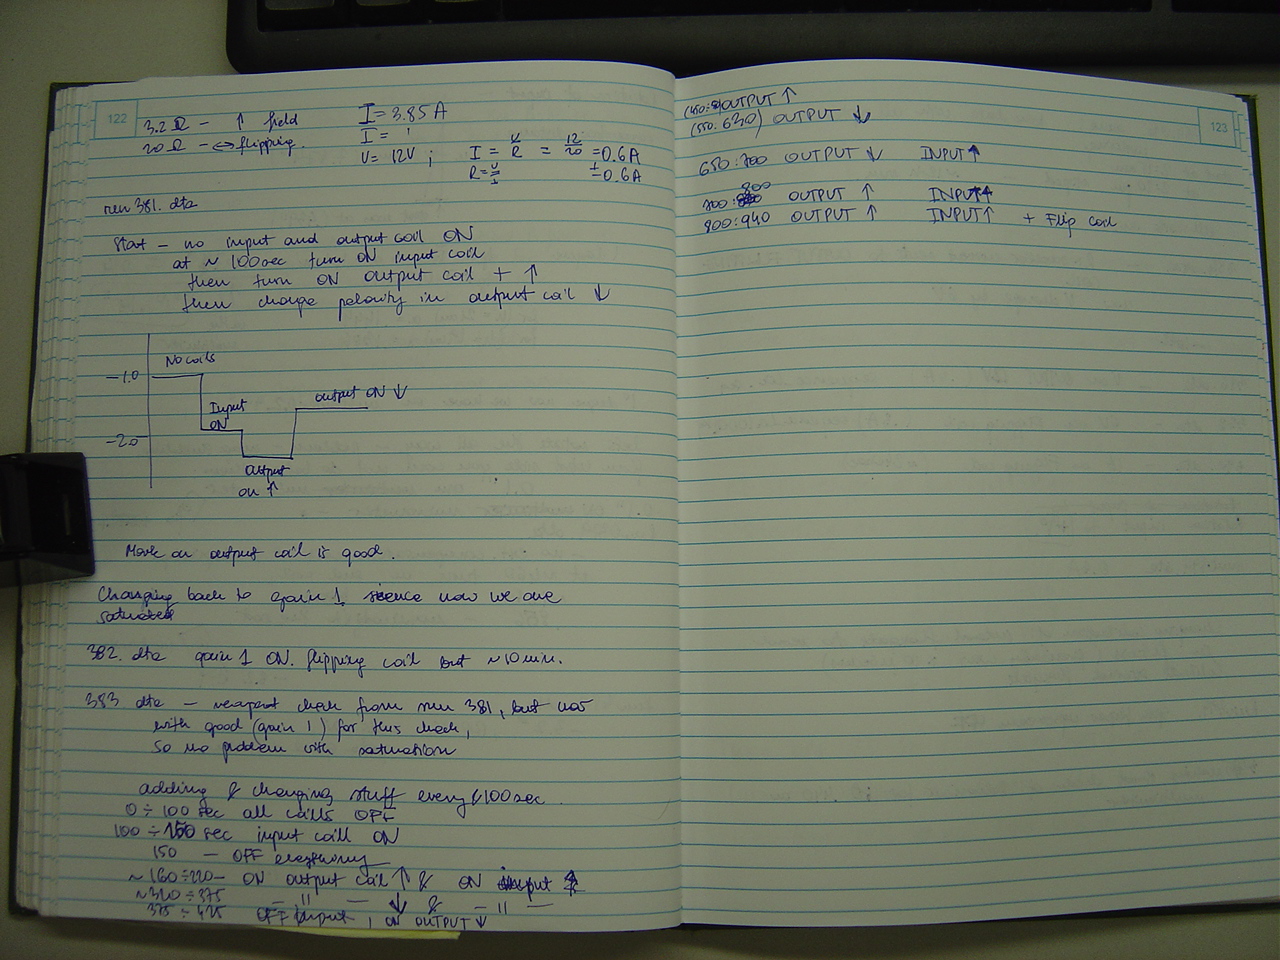 122
3.2 Ω – ↑ field I = 3.85 A
20 Ω – ↔ flipping. I =
V = 12V ; I = V/R = 12/20 = 0.6A
R = V/I ± 0.6A
run 381. dta
Start – no input and output coil ON
at ~ 100sec turn ON input coil
then turn ON output coil + ↑
then change polarity in output coil ↓
No coils
–1.0
Input
ON
output ON ↓
–2.0
Output
on ↑
More on output coil is good.
Changing back to gain 1, sience now we are
saturated
382. dta gain 1 ON. flipping coil but ~10 min.
383 dta – reapeat check from run 381, but now
with good (gain 1) for this check,
So no problem with saturation
adding & changing stuff every 100sec
0 ÷ 100 sec all coills OFF
100 ÷ 150 sec input coill ON
150 – OFF everything
~ 160÷220 – ON output coil ↑ & ON input ↑
~320 ÷ 375 – " – ↓ & – " –
375 ÷ 425 OFF Input , ON OUTPUT ↓
123
OUTPUT ↑
(550. 630) OUTPUT ↓
650:700 OUTPUT ↓ INPUT ↑
700:800 OUTPUT ↑ INPUT ↑
800:940 OUTPUT ↑ INPUT ↑ + Flip coil